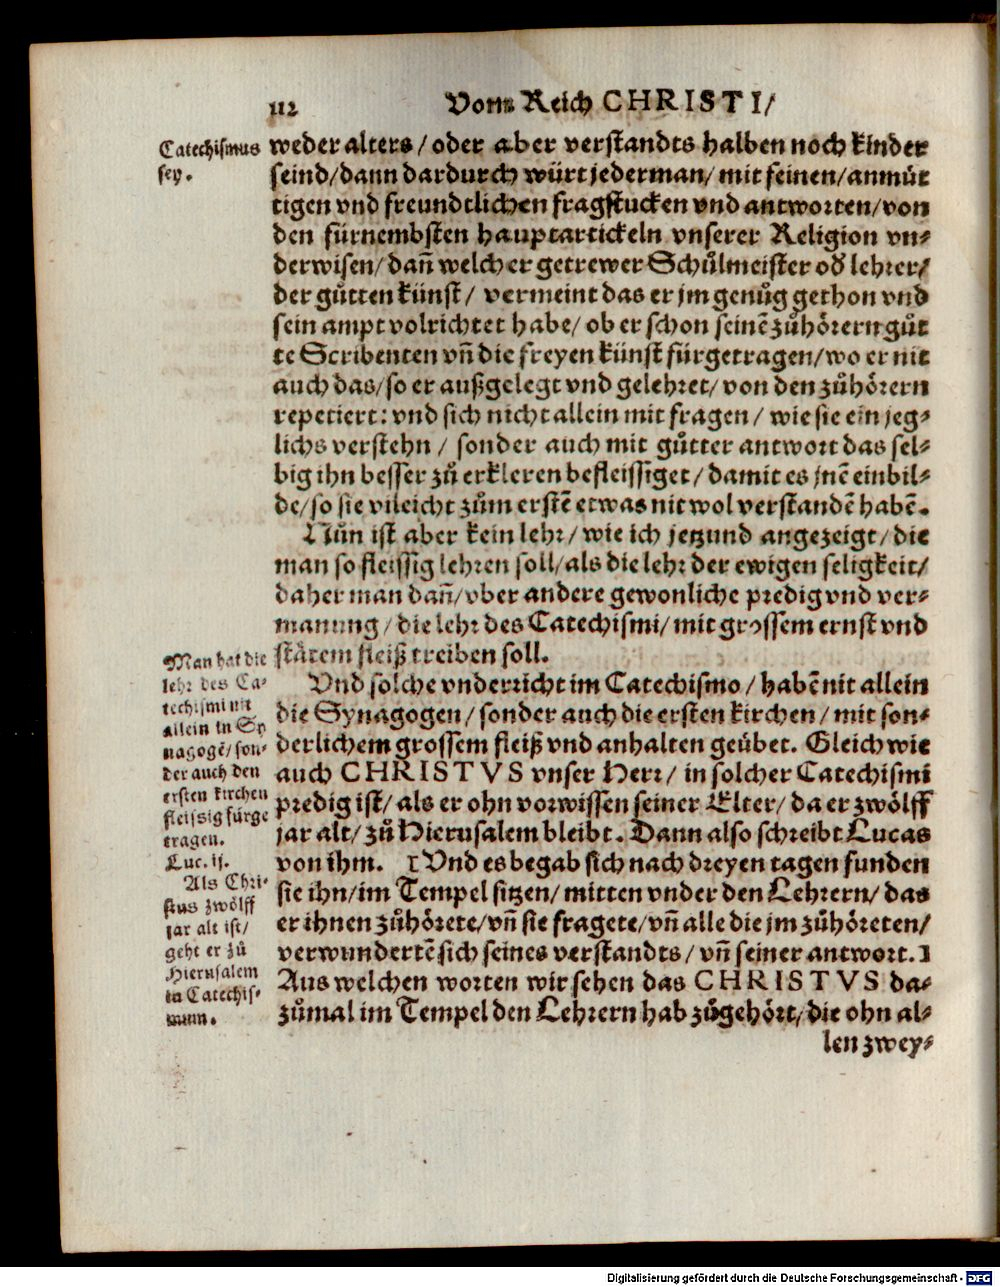 112
Vom Reich CHRISTI/
Catechismus
sey.
weder alters/ oder aber verstandts halben noch kinder
seind/ dann dardurch würt jederman/ mit feinen/ anmůt
tigen vnd freundtlichen fragstucken vnd antworten/ von
den fürnembsten hauptartickeln vnserer Religion vn⸗
derwisen/ dañ welcher getrewer Schůlmeister od' lehrer/
der gůtten künst/ vermeint das er jm genůg gethon vnd
sein ampt volrichtet habe/ ob er schon seinē zůhörern gůt
te Scribenten vñ die freyen künst fürgetragen/ wo er nit
auch das/ so er außgelegt vnd gelehret/ von den zůhörern
repetiert: vnd sich nicht allein mit fragen/ wie sie ein jeg⸗
lichs verstehn/ sonder auch mit gůtter antwort das sel⸗
big ihn besser zů erkleren befleissiget/ damit es jnē einbil⸗
de/ so sie vileicht zům erstē etwas nit wol verstandē habē.
Nůn ist aber kein lehr/ wie ich jetzund angezeigt/ die
man so fleissig lehren soll/ als die lehr der ewigen seligkeit/
daher man dañ/ vber andere gewonliche predig vnd ver⸗
manung/ die lehr des Catechismi/ mit grossem ernst vnd
stätem fleiß treiben soll.
Man hat die
lehr des Ca⸗
techismi nit
allein in Sy
nagogē/ son⸗
der auch den
ersten kirchen
fleissig fürge
tragen.
Luc. ij.
Als Chri⸗
stus zwölff
jar alt ist/
geht er zů
Hierusalem
in Catechis⸗
mum.
Vnd solche vnderricht im Catechismo/ habē nit allein
die Synagogen/ sonder auch die ersten kirchen/ mit son⸗
derlichem grossem fleiß vnd anhalten geübet. Gleich wie
auch CHRISTVS vnser Herr/ in solcher Catechismi
predig ist/ als er ohn vorwissen seiner Elter/ da er zwölff
jar alt/ zů Hierusalem bleibt. Dann also schreibt Lucas
von ihm. [Vnd es begab sich nach dreyen tagen funden
sie ihn/ im Tempel sitzen/ mitten vnder den Lehrern/ das
er ihnen zůhörete/ vñ sie fragete/ vñ alle die jm zůhöreten/
verwundertē sich seines verstandts/ vñ seiner antwort.]
Aus welchen worten wir sehen das CHRISTVS da⸗
zůmal im Tempel den Lehrern hab zůgehört/ die ohn al⸗
len zwey⸗
Digitalisierung gefördert durch die Deutsche Forschungsgemeinschaft - DFG